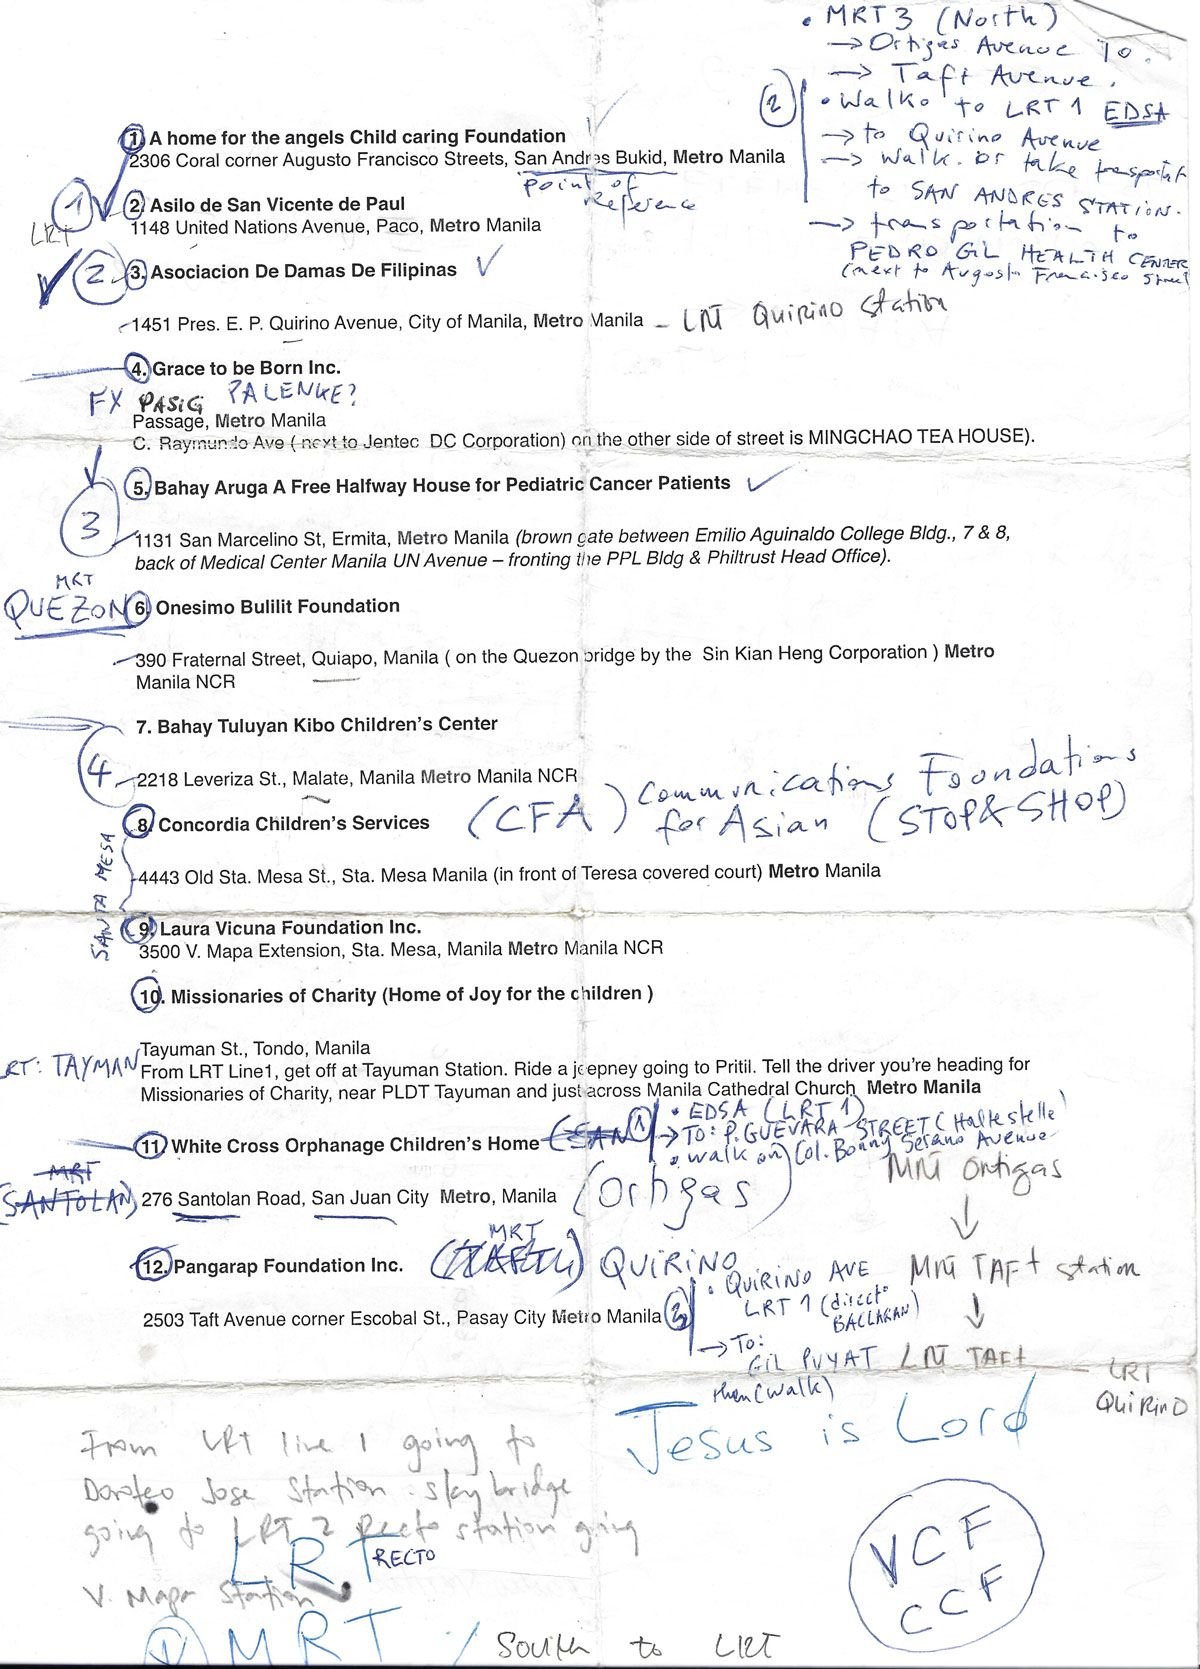 • MRT 3 (North)
→ Ortigas Avenue To
→ Taft Avenue.
② • Walk to LRT 1 EDSA
→ to Quirino Avenue
→ walk or take transportat
to SAN ANDRES STATION.
→ transportation to
PEDRO GIL HEALTH CENTER
(next to Augusto Francisco Street
1. A home for the angels Child caring Foundation
2306 Coral corner Augusto Francisco Streets, San Andres Bukid, Metro Manila
point of
Reference
1
LRT
2. Asilo de San Vicente de Paul
1148 United Nations Avenue, Paco, Metro Manila
2 3. Asociacion De Damas De Filipinas
1451 Pres. E. P. Quirino Avenue, City of Manila, Metro Manila – LRT Quirino Station
4. Grace to be Born Inc.
FX PASIG PALENKE?
Passage, Metro Manila
C. Raymundo Ave ( next to Jentec DC Corporation) on the other side of street is MINGCHAO TEA HOUSE).
5. Bahay Aruga A Free Halfway House for Pediatric Cancer Patients
3
1131 San Marcelino St, Ermita, Metro Manila (brown gate between Emilio Aguinaldo College Bldg., 7 & 8,
back of Medical Center Manila UN Avenue – fronting the PPL Bldg & Philtrust Head Office).
MRT
QUEZON 6. Onesimo Bulilit Foundation
390 Fraternal Street, Quiapo, Manila ( on the Quezon bridge by the Sin Kian Heng Corporation ) Metro
Manila NCR
7. Bahay Tuluyan Kibo Children's Center
4
2218 Leveriza St., Malate, Manila Metro Manila NCR
8. Concordia Children's Services (CFA) Communications Foundations
for Asian (STOP & SHOP)
SANTA MESA
4443 Old Sta. Mesa St., Sta. Mesa Manila (in front of Teresa covered court) Metro Manila
9. Laura Vicuna Foundation Inc.
3500 V. Mapa Extension, Sta. Mesa, Manila Metro Manila NCR
10. Missionaries of Charity (Home of Joy for the children )
Tayuman St., Tondo, Manila
LRT: TAYMAN From LRT Line1, get off at Tayuman Station. Ride a jeepney going to Pritil. Tell the driver you're heading for
Missionaries of Charity, near PLDT Tayuman and just across Manila Cathedral Church Metro Manila
11. White Cross Orphanage Children's Home (SAN
① • EDSA (LRT 1)
→ TO: P. GUEVARA STREET (Haltestelle)
• walk on Col. Bonny Serano Avenue
MRT
(SANTOLAN) 276 Santolan Road, San Juan City Metro, Manila (Ortigas)
MRT Ortigas
↓
MRT TAFT station
↓
LRT TAFT – LRT
QUIRINO
MRT
12. Pangarap Foundation Inc. QUIRINO
2503 Taft Avenue corner Escobal St., Pasay City Metro Manila
③ • QUIRINO AVE
LRT 1 (direct
BACLARAN)
→ To:
GIL PUYAT
then (walk)
Jesus is Lord
From LRT line 1 going to
Doroteo Jose Station skybridge
going to LRT 2 Recto station going
V. Mapa Station
LRT RECTO
① MRT / South to LRT
VCF
CCF